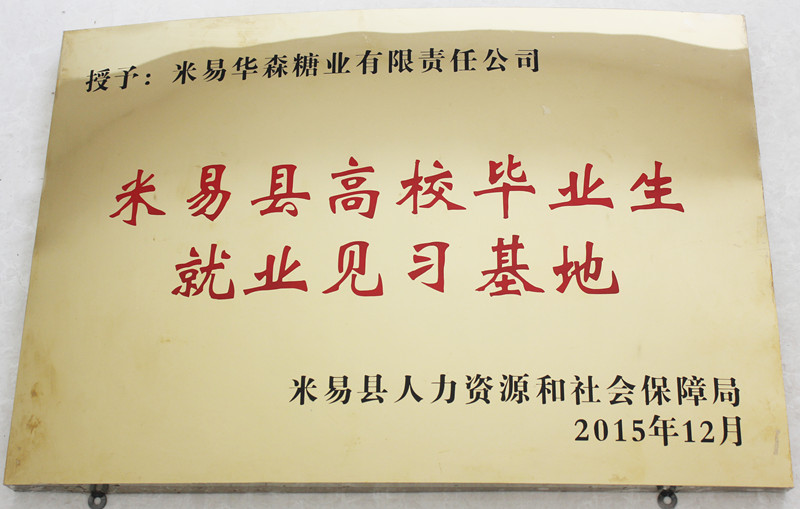 授予：米易华森糖业有限责任公司
米易县高校毕业生
就业见习基地
米易县人力资源和社会保障局
2015年12月